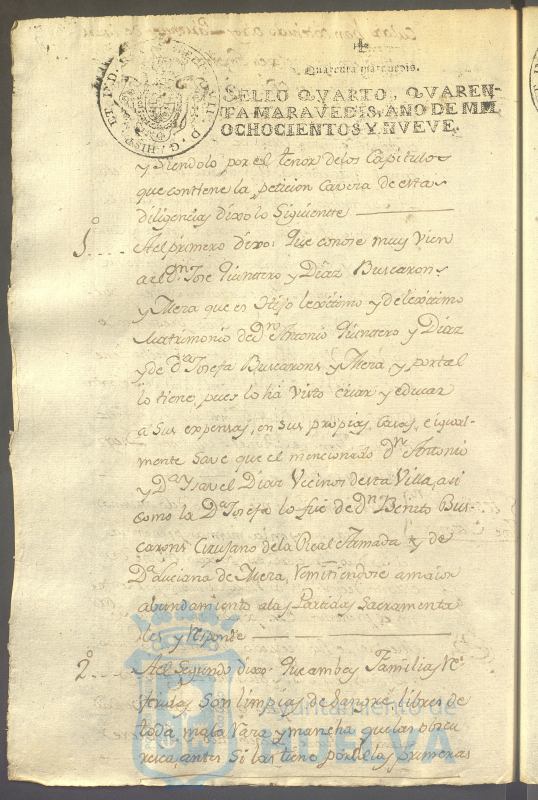 Quarenta maravedis.
SELLO QVARTO, QVAREN-
TA MARAVEDIS, AÑO DE MIL
OCHOCIENTOS Y NVEVE.
y siendolo por el tenor delos Capitulos
que contiene la peticion Caveza de estas
diligencias dixo lo Siguiente
1º.... Al primero dixo: Que conose muy vien
a el Dn. Jose Quintero y Diaz Buscarons
y Mera que es Hijo lexitimo y de lexitimo
Matrimonio de Dn. Antonio Quintero y Diaz
y de Da. Josefa Buscarons y Mera, y portal
lo tiene, pues lo ha Visto criar y educar
a Sus expensas, en Sus propias, Casas, e igual-
mente Save que el mencionado Dn. Antonio
y Da. Ysavel Diaz Vecinos desta Villa, asi
como la Da. Josefa lo fue de Dn. Benito Bus-
carons Cirujano dela Real Armada y de
Da. Luciana de Mera, remitiendose a maior
abundamiento alas Partidas Sacramenta
les y responde
2º.... Al Segundo dixo: Que ambas Familias
son limpias de Sangre, libres de
toda mala raza y mancha que las obscu
resca, antes Si las tiene por de las primeras
Ayuntamiento de
HUELVA